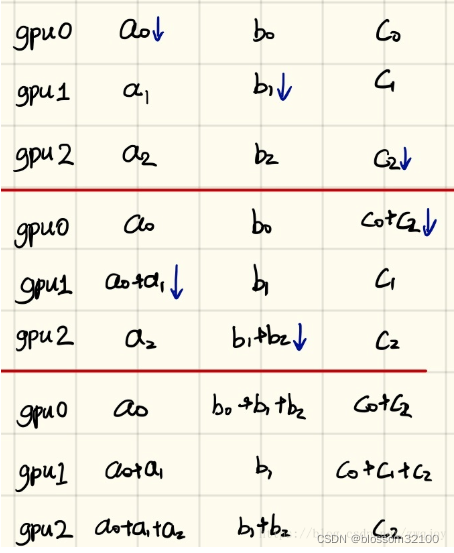 gpu0 a₀↓ b₀ C₀
gpu1 a₁ b₁↓ C₁
gpu2 a₂ b₂ C₂↓
gpu0 a₀ b₀ C₀+C₂↓
gpu1 a₀+a₁↓ b₁ C₁
gpu2 a₂ b₁+b₂↓ C₂
gpu0 a₀ b₀+b₁+b₂ C₀+C₂
gpu1 a₀+a₁ b₁ C₀+C₁+C₂
gpu2 a₀+a₁+a₂ b₁+b₂ C₂
CSDN @blossom32100